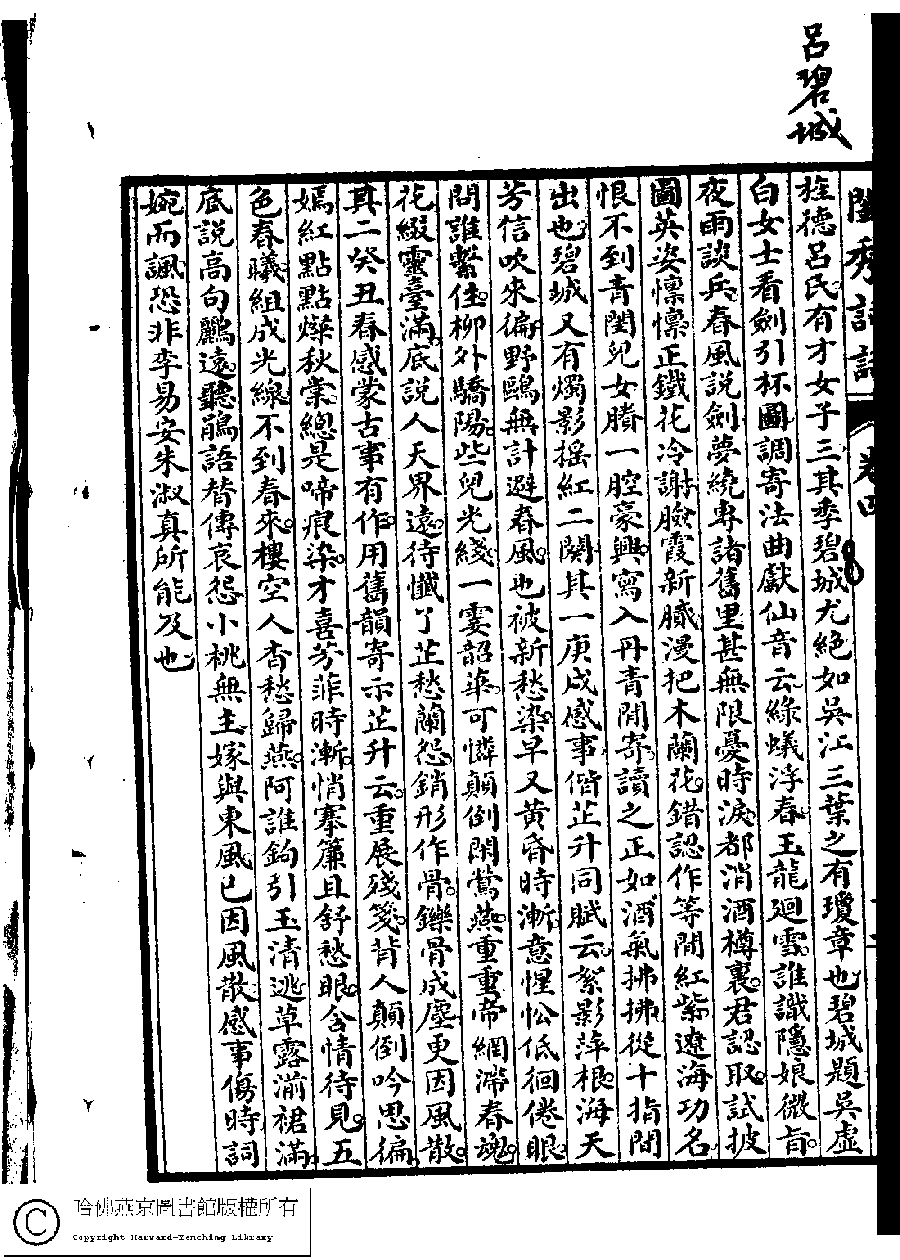 呂碧城
閨秀詩話 卷四
旌德呂氏有才女子三其季碧城尤絕如吳江三葉之有瓊章也碧城題吳虛
白女士看劍引杯圖調寄法曲獻仙音云綠蟻浮春玉龍迴雪誰識隱娘微旨
夜雨談兵春風說劍夢繞專諸舊里甚無限憂時淚都消酒樽裏君認取試披
圖英姿懍懍正鐵花冷謝臉霞新膩漫把木蘭花錯認作等閒紅紫遼海功名
恨不到青閨兒女賸一腔豪興寫入丹青閒寄讀之正如酒氣拂拂從十指間
出也碧城又有燭影搖紅二闋其一庚戌感事偕芷升同賦云絮影萍根海天
芳信吹來徧野鷗無計避春風也被新愁染早又黃昏時漸意惺忪低徊倦眼
問誰繫住柳外驕陽些兒光綫一霎韶華可憐顛倒閒鶯燕重重帝網滯春魂
花綴靈臺滿底說人天界遠待懺了芷愁蘭怨銷形作骨鑠骨成塵更因風散
其二癸丑春感蒙古事有作用舊韻寄示芷升云重展殘箋背人顛倒吟思徧
嫣紅點點爍秋棠總是啼痕染才喜芳菲時漸悄搴簾且舒愁眼含情待見五
色春曦組成光線不到春來樓空人杳愁歸燕阿誰鉤引玉清逃草露湔裙滿
底說高句驪遠聽鵑語替傳哀怨小桃無主嫁與東風已因風散感事傷時詞
婉而諷恐非李易安朱淑真所能及也
哈佛燕京圖書館版權所有
Copyright Harvard-Yenching Library